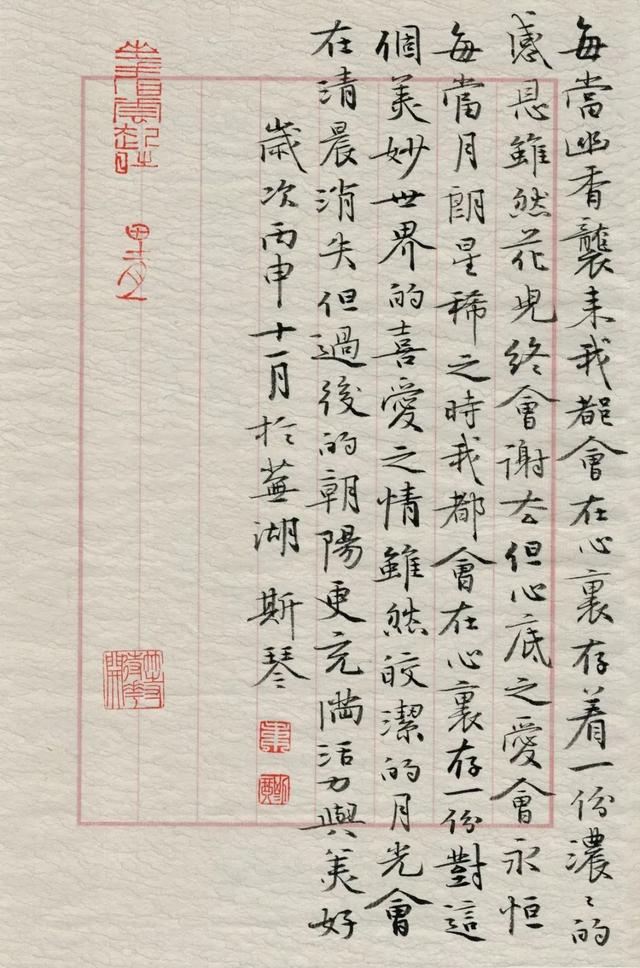 每當幽香襲来我都會在心裏存着一份濃〻的
感恩雖然花児終會谢去但心底之愛會永恒
每當月朗星稀之時我都會在心裏存一份對這
個美妙世界的喜愛之情雖然皎潔的月光會
在清晨消失但過後的朝陽更充满活力與美好
歲次丙申十一月於蕪湖 斯琴